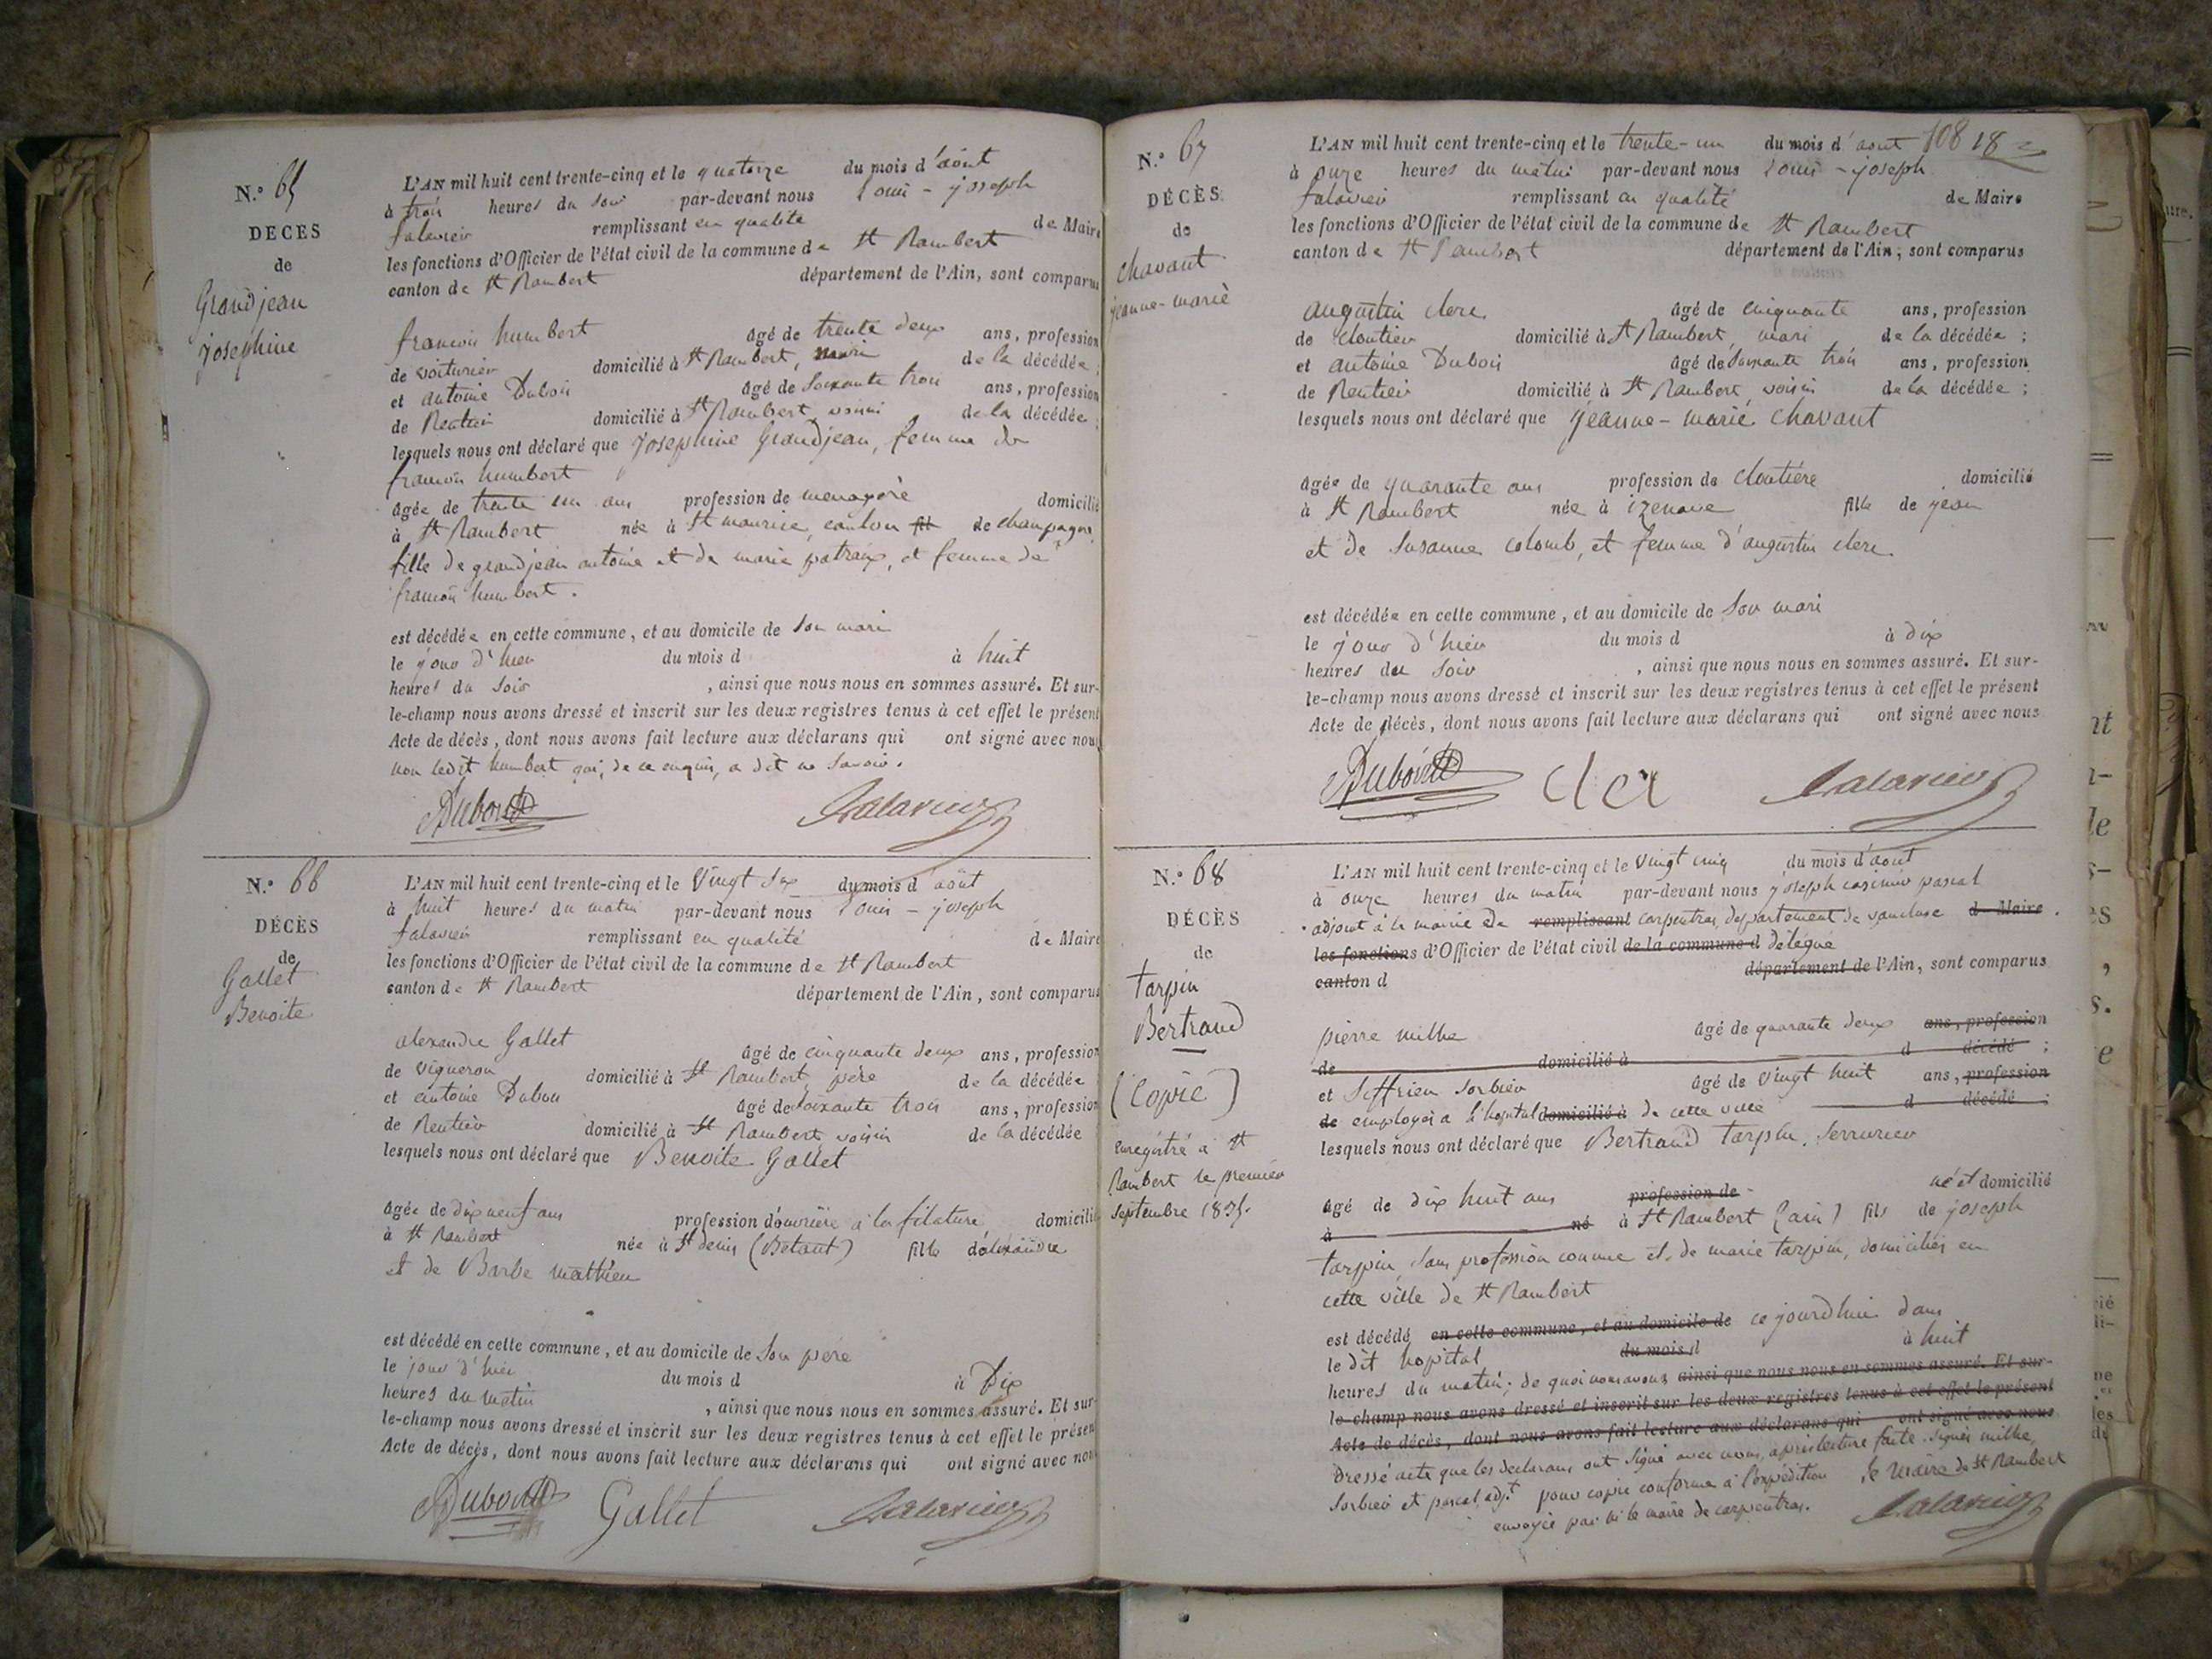 N.° 65
DECES
de
Grandjean
Joséphine
L'AN mil huit cent trente-cinq et le quatorze du mois d'août
à trois heures du soir par-devant nous Louis-joseph
falavier remplissant en qualité de Maire
les fonctions d'Officier de l'état civil de la commune de St Rambert
canton de St Rambert département de l'Ain, sont comparus
françois humbert agé de trente deux ans, profession
de voiturier domicilié à St Rambert, mari de la décédée ;
et antoine Dubois agé de soixante trois ans, profession
de Rentier domicilié à St Rambert, voisin de la décédée ;
lesquels nous ont déclaré que Josephine Grandjean, femme de
françois humbert
agée de trente un ans profession de menagère domicilié
à St Rambert née à St maurice, canton de champagne
fille de grandjean antoine et de marie patraux, et femme de
françois humbert.
est décédée en cette commune, et au domicile de son mari
le jour d'hier du mois d à huit
heures du soir , ainsi que nous nous en sommes assuré. Et sur-
le-champ nous avons dressé et inscrit sur les deux registres tenus à cet effet le présent
Acte de décès, dont nous avons fait lecture aux déclarans qui ont signé avec nous
non ledit humbert qui, de ce enquis, a dit ne savoir.
Dubois falavier
N.° 66
DÉCÈS
de
Gallet
Benoite
L'AN mil huit cent trente-cinq et le Vingt six du mois d'août
à huit heures du matin par-devant nous Louis-joseph
falavier remplissant en qualité de Maire
les fonctions d'Officier de l'état civil de la commune de St Rambert
canton de St Rambert département de l'Ain, sont comparus
alexandre Gallet agé de cinquante deux ans, profession
de vigneron domicilié à St Rambert, père de la décédée
et antoine Dubois agé de soixante trois ans, profession
de Rentier domicilié à St Rambert, voisin de la décédée
lesquels nous ont déclaré que Benoite Gallet
agée de dix neuf ans profession d'ouvrière à la filature domicilié
à St Rambert née à St denis (Bétant) fille d'alexandre
et de Barbe mathieu
est décédé en cette commune, et au domicile de son père
le jour d'hier du mois d à Dix
heures du matin , ainsi que nous nous en sommes assuré. Et sur-
le-champ nous avons dressé et inscrit sur les deux registres tenus à cet effet le présent
Acte de décès, dont nous avons fait lecture aux déclarans qui ont signé avec nous
Dubois Gallet falavier
108 18
N.° 67
DÉCÈS
de
chavant
jeanne-marie
L'AN mil huit cent trente-cinq et le trente-un du mois d'aout
à onze heures du matin par-devant nous Louis-joseph
falavier remplissant en qualité de Maire
les fonctions d'Officier de l'état civil de la commune de St Rambert
canton de St Rambert département de l'Ain, sont comparus
augustin clerc agé de cinquante ans, profession
de cloutier domicilié à St Rambert, mari de la décédée ;
et antoine Dubois agé de soixante trois ans, profession
de Rentier domicilié à St Rambert, voisin de la décédée ;
lesquels nous ont déclaré que Jeanne-marie chavant
agée de quarante ans profession de cloutière domicilié
à St Rambert née à izenave fille de jean
et de Susanne colomb, et femme d'augustin clerc
est décédée en cette commune, et au domicile de son mari
le jour d'hier du mois d à dix
heures du soir , ainsi que nous nous en sommes assuré. Et sur-
le-champ nous avons dressé et inscrit sur les deux registres tenus à cet effet le présent
Acte de décès, dont nous avons fait lecture aux déclarans qui ont signé avec nous
Dubois cler falavier
N.° 68
DÉCÈS
de
tarpin
Bertrand
(Copie)
enregistré à St
Rambert le premier
septembre 1835.
L'AN mil huit cent trente-cinq et le vingt cinq du mois d'aout
à onze heures du matin par-devant nous joseph casimir pascal
adjoint à la mairie de remplissant carpentras, département de vaucluse d Maire
les fonctions d'Officier de l'état civil de la commune d délégué
canton d département de l'Ain, sont comparus
pierre milhe agé de quarante deux ans, profession
de domicilié à d décédé ;
et Siffrien Sorbier agé de vingt huit ans, profession
de employés à l'hopital domicilié à de cette ville d décédé ;
lesquels nous ont déclaré que Bertrand tarpin, serrurier
agé de dix huit ans profession de né et domicilié
à né à St Rambert (ain) fils de joseph
tarpin, sans profession connue et de marie tarpin, domiciliés en
cette ville de St Rambert
est décédé en cette commune, et au domicile de ce jourd'hui dans
le dit hopital du mois d à huit
heures du matin; de quoi nous avons ainsi que nous nous en sommes assuré. Et sur-
le-champ nous avons dressé et inscrit sur les deux registres tenus à cet effet le présent
Acte de décès, dont nous avons fait lecture aux déclarans qui ont signé avec nous
dressé acte que les déclarans ont signé avec nous, après lecture faite. signés milhe,
Sorbier et pascal adjt pour copie conforme à l'expédition le Maire de St Rambert
envoyée par le maire de carpentras. falavier